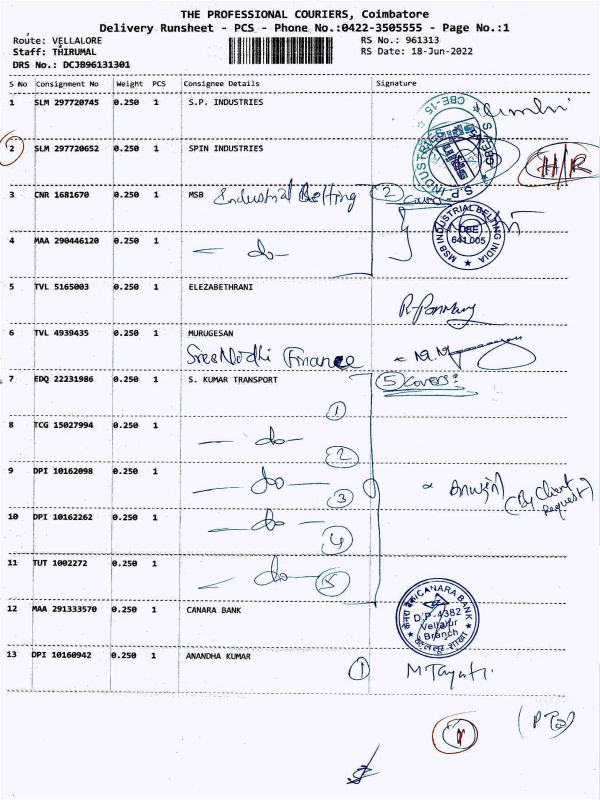 THE PROFESSIONAL COURIERS, Coimbatore
Delivery Runsheet - PCS - Phone No.:0422-3505555 - Page No.:1
Route: VELLALORE
RS No.: 961313
Staff: THIRUMAL
RS Date: 18-Jun-2022
DRS No.: DCJB96131301
S No Consignment No Weight PCS Consignee Details Signature
1 SLM 297720745 0.250 1 S.P. INDUSTRIES
2 SLM 297720652 0.250 1 SPIN INDUSTRIES H/R
S.P. INDUSTRIES CBE-15
3 CNR 1681670 0.250 1 MSB Industrial Belting 2
MSB INDUSTRIAL BELTING INDIA
CBE
641 005
4 MAA 290446120 0.250 1 — do —
5 TVL 5165003 0.250 1 ELEZABETHRANI
6 TVL 4939435 0.250 1 MURUGESAN
Finance
7 EDQ 22231986 0.250 1 S. KUMAR TRANSPORT 5 Covers:
1
8 TCG 15027994 0.250 1 — do —
2
9 DPI 10162098 0.250 1 — do —
3
(By Client Request)
10 DPI 10162262 0.250 1 — do —
4
11 TUT 1002272 0.250 1 — do — 5
12 MAA 291333570 0.250 1 CANARA BANK
CANARA BANK
D.P-4382
Vellalur
Branch
13 DPI 10160942 0.250 1 ANANDHA KUMAR
1
(PTO)